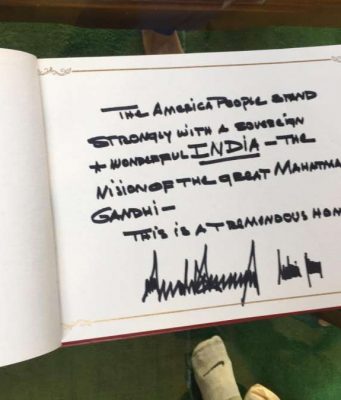 The America People stand
strongly with a sovereign
+ wonderful INDIA – The
vision of the great Mahatma
Gandhi –
This is a tremendous hon